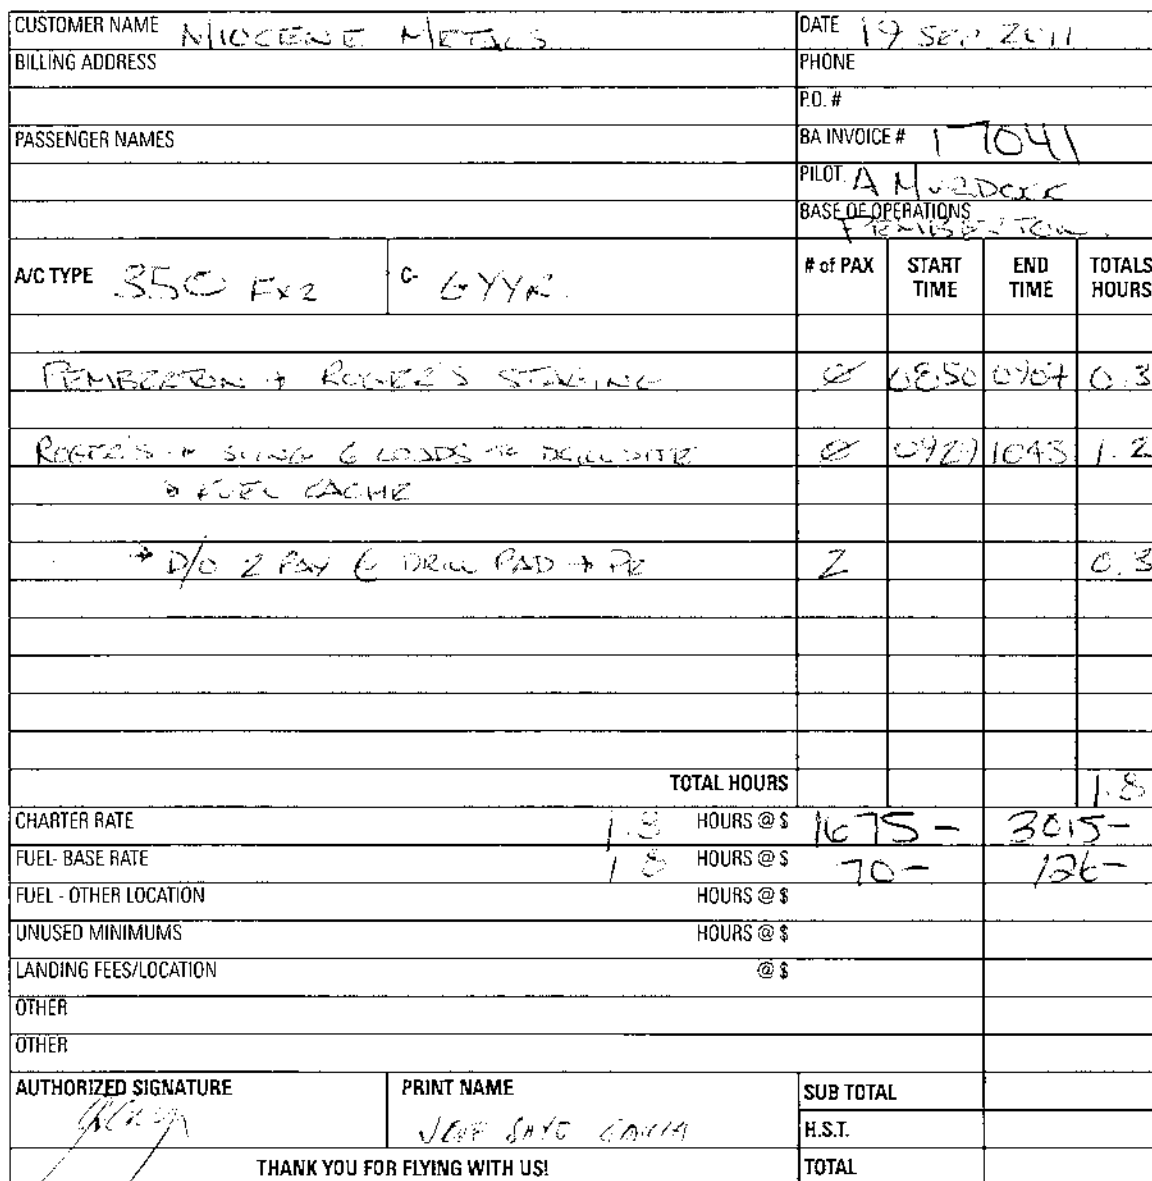 CUSTOMER NAME MIOCENE METALS DATE 19 SEP 2011
BILLING ADDRESS PHONE
P.O. #
PASSENGER NAMES BA INVOICE # 17041
PILOT. A MURDOCK
BASE OF OPERATIONS PEMBERTON
A/C TYPE 350 FX2 C- GYYR # of PAX START TIME END TIME TOTALS HOURS
PEMBERTON → ROGER'S STAGING Ø 0850 0907 0.3
ROGER'S → SLING 6 LOADS TO DRILL SITE Ø 0929 1043 1.2
→ FUEL CACHE
→ D/O 2 PAX @ DRILL PAD → 2 0.3
TOTAL HOURS 1.8
CHARTER RATE 1.8 HOURS @ $ 1675 - 3015 -
FUEL- BASE RATE 1.8 HOURS @ $ 70 - 126 -
FUEL - OTHER LOCATION HOURS @ $
UNUSED MINIMUMS HOURS @ $
LANDING FEES/LOCATION @ $
OTHER
OTHER
AUTHORIZED SIGNATURE PRINT NAME SUB TOTAL
H.S.T.
THANK YOU FOR FLYING WITH US! TOTAL